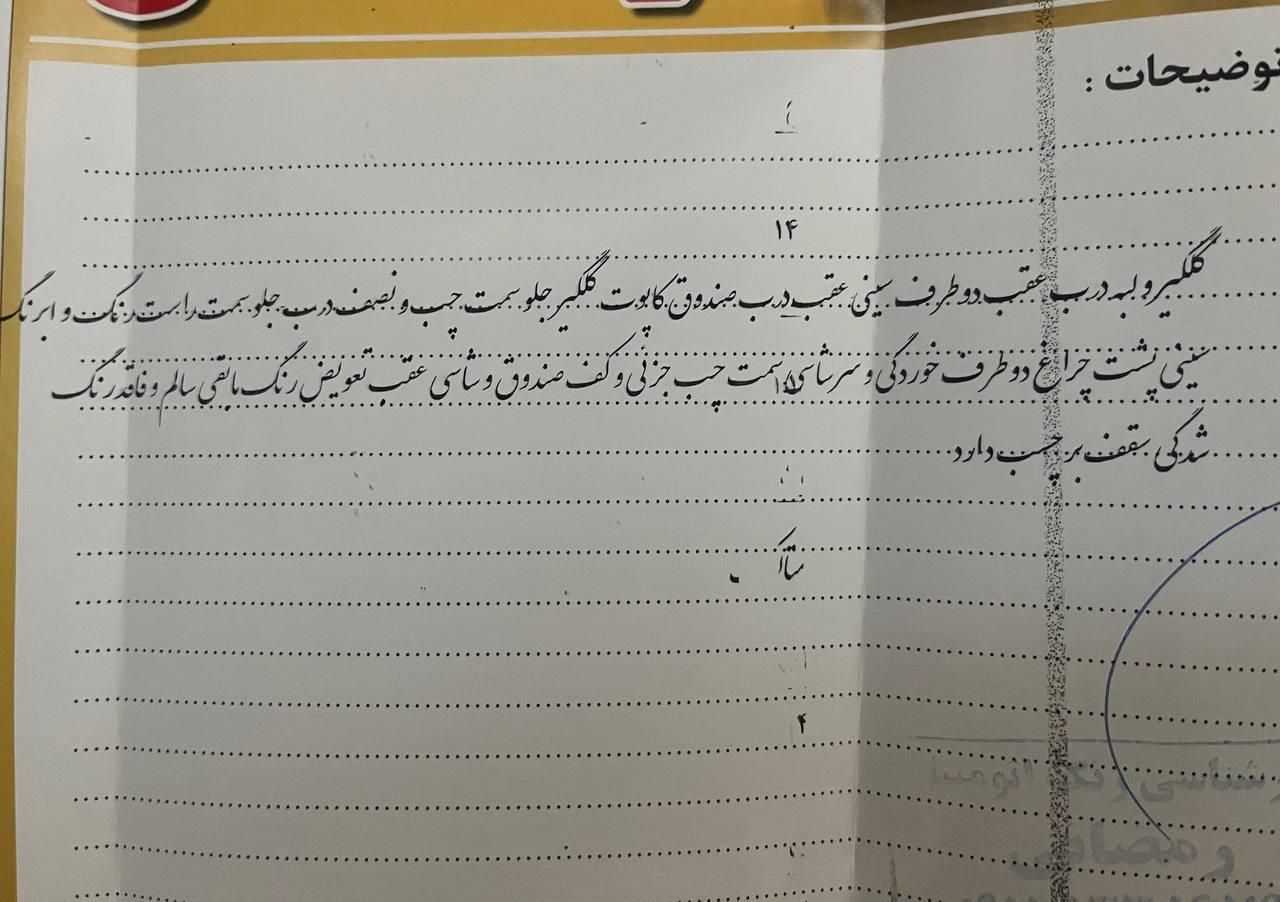 توضیحات :
۱۴
گلگیر و لبه درب عقب دو طرف سینی عقب درب صندوق کاپوت گلگیر جلو سمت چپ و نصف درب جلو سمت راست رنگ و ابررنگ
سینی پشت چراغ دو طرف خوردگی و سرشاسی سمت چپ جزئی و کف صندوق و شاسی عقب تعویض رنگ مابقی سالم و فاقد رنگ
شدگی سقف برچسب دارد
۴